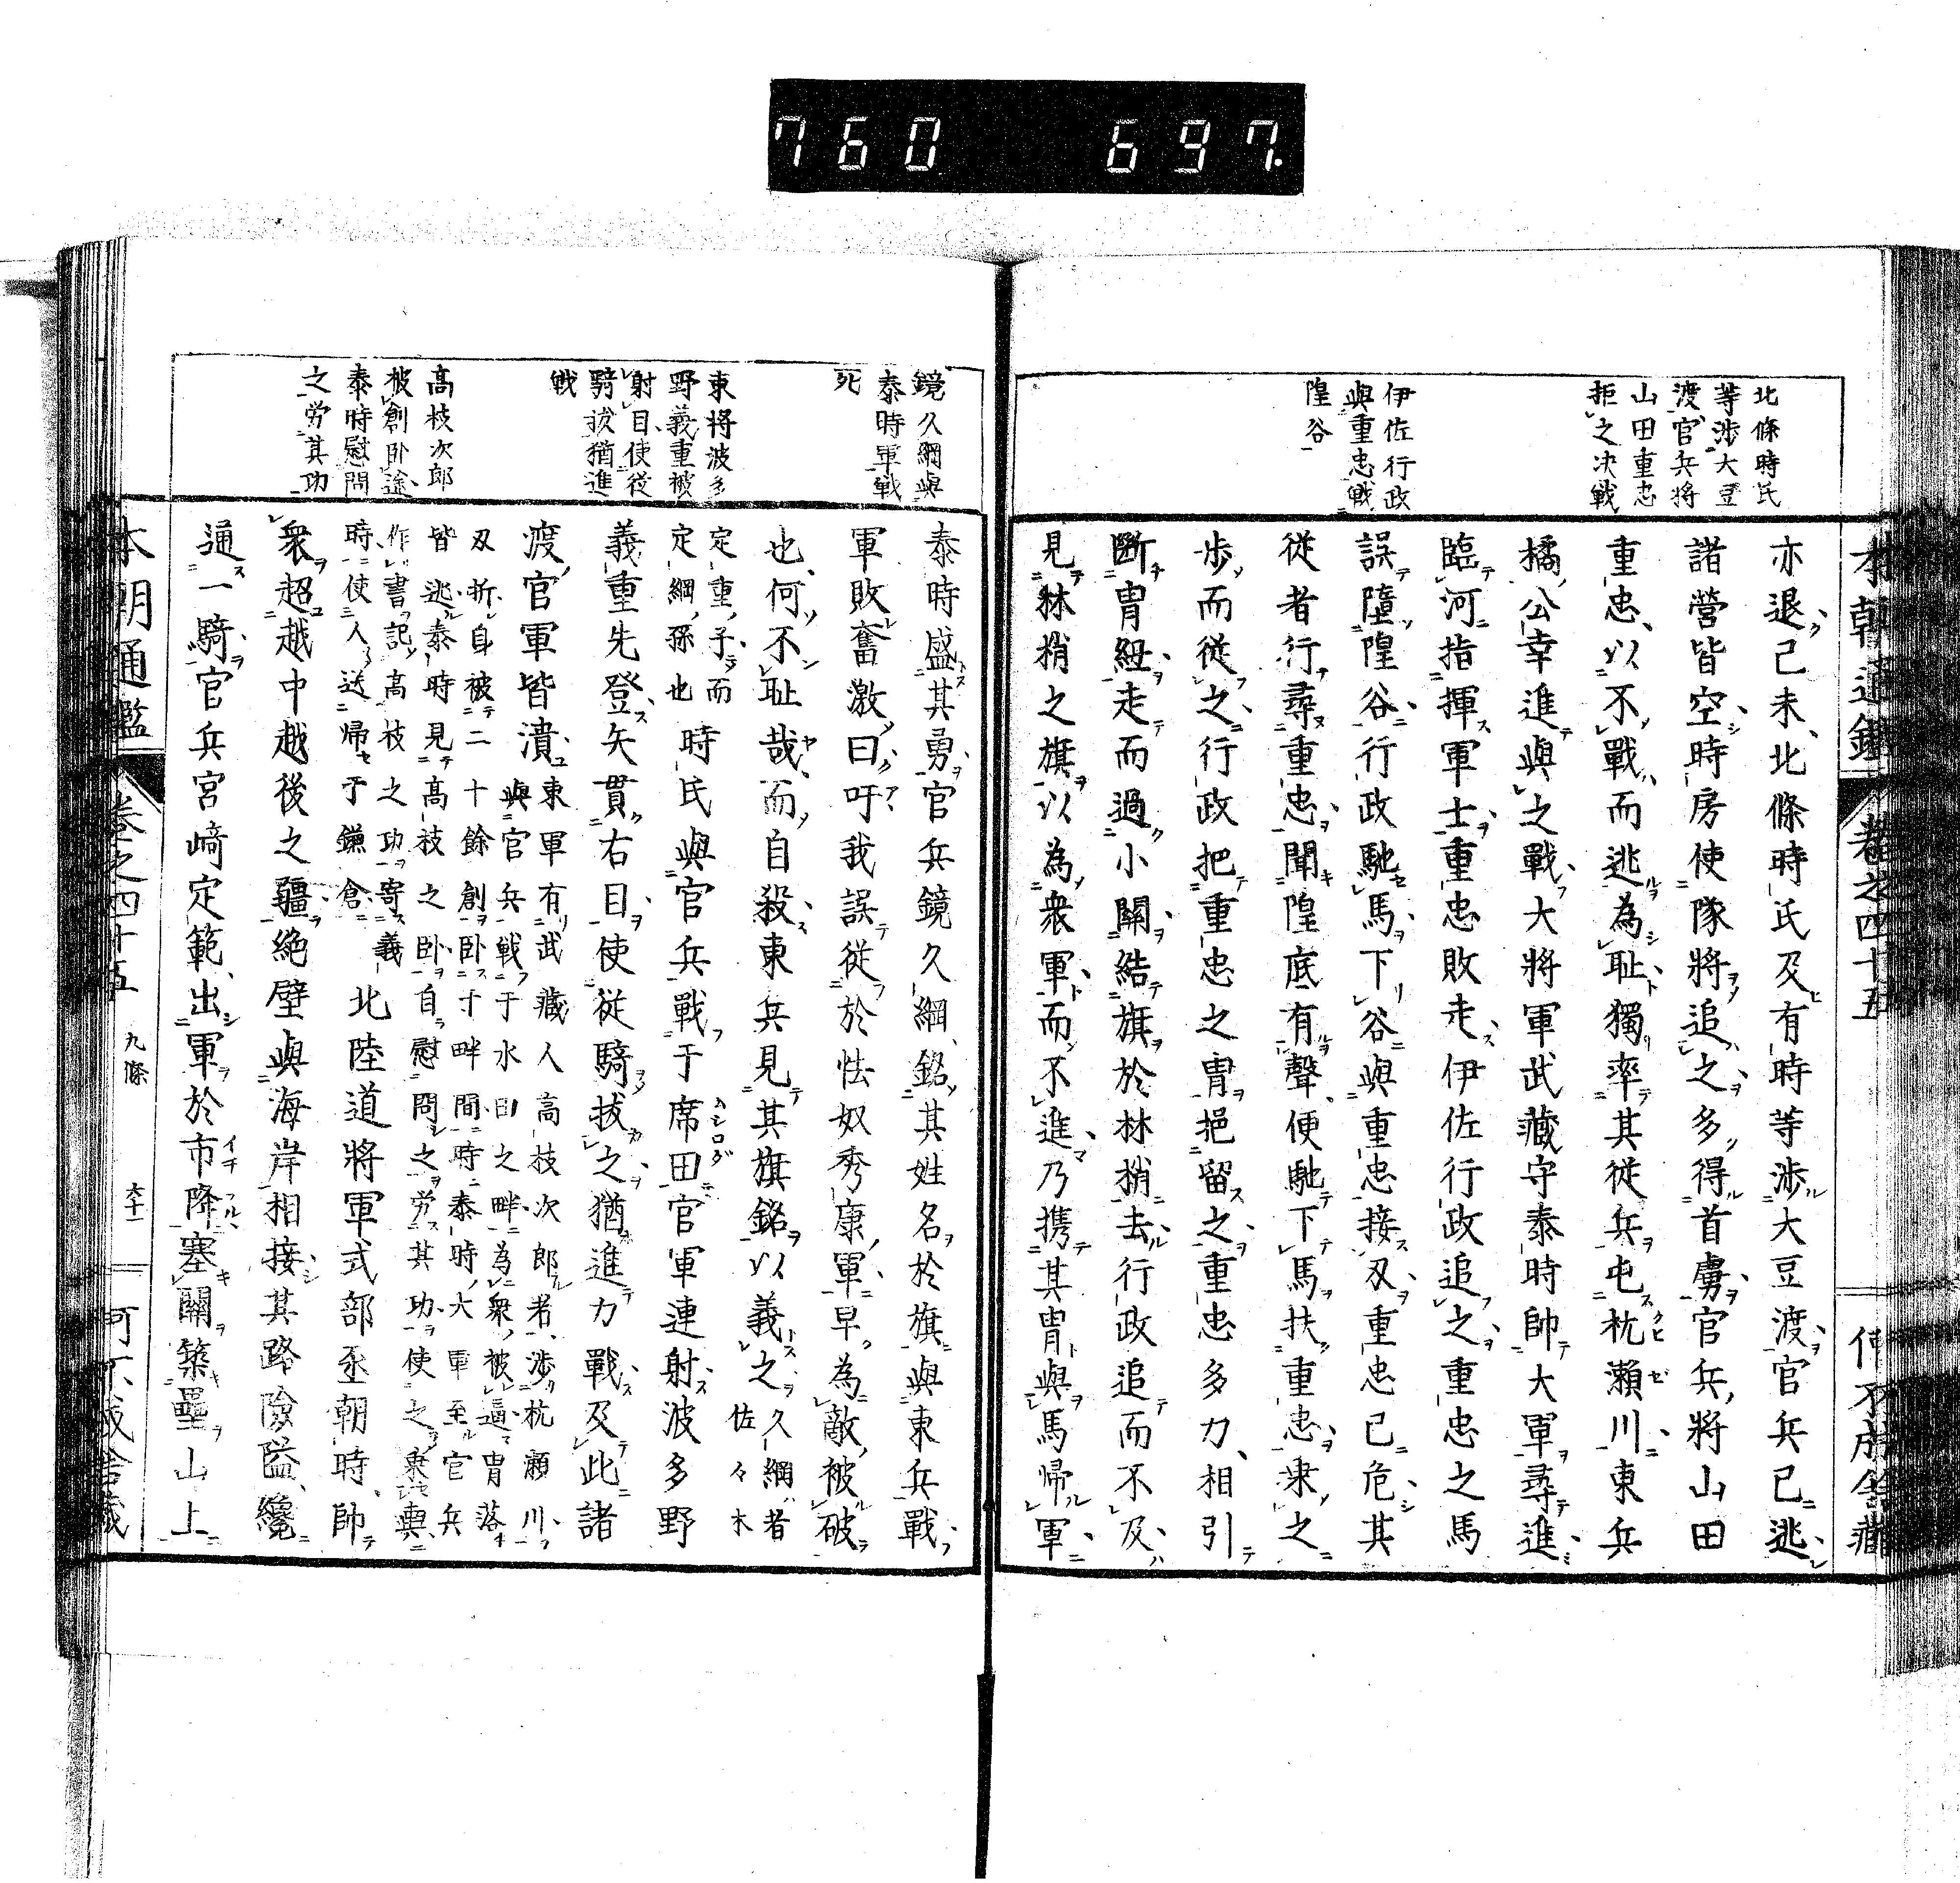 760 697.
北條時氏
等渉大豆
渡官兵將
山田重忠
拒之决戰
伊佐行政
與重忠戰
隍谷
亦退己未北條時氏及有時等渉大豆渡官兵已逃
諸營皆空時房使隊將追之多得首虜官兵將山田
重忠以不戰而逃為耻獨率其從兵屯杭瀨川東兵
橘公幸進與之戰大將軍武藏守泰時帥大軍尋進
臨河指揮軍士重忠敗走伊佐行政追之重忠之馬
誤墮隍谷行政馳馬下谷與重忠接刄重忠已危其
從者行尋重忠聞隍底有聲便馳下馬扶重忠乗之
歩而從之行政把重忠之冑挹留之重忠多力相引
斷冑紐走而過小關結旗於林梢去行政追而不及
見林梢之旗以為衆軍而不進乃携其冑與馬帰軍
鏡久綱與
泰時軍戰
死
東將波多
野義重被
射目使從
騎拔猶進
戰
高枝次郎
被創卧途
泰時慰問
之労其功
泰時盛其勇官兵鏡久綱銘其姓名於旗與東兵戰
軍敗奮激曰吁我誤從於怯奴秀康軍早為敵被破
也何不耻哉而自殺東兵見其旗銘以義之久綱者
佐々木
定重子而
定綱孫也時氏與官兵戰于席田官軍連射波多野
義重先登矢貫右目使從騎拔之猶進力戰及此諸
渡官軍皆潰東軍有武藏人高枝次郎者渉杭瀨川
與官兵戰于水田之畔為衆被逼冑落
刄折自被二十餘創卧于畔間時泰時大軍至官兵
皆逃泰時見高枝之卧自慰問之労其功使之乗輿
作書記高枝之功寄義
時使人送帰于鎌倉北陸道將軍式部丞朝時帥
衆超越中越後之疆絶壁與海岸相接其路險隘纔
通一騎官兵宮﨑定範出軍於市降塞關築壘山上
本朝通鑑 卷之四十五 九條 六十一